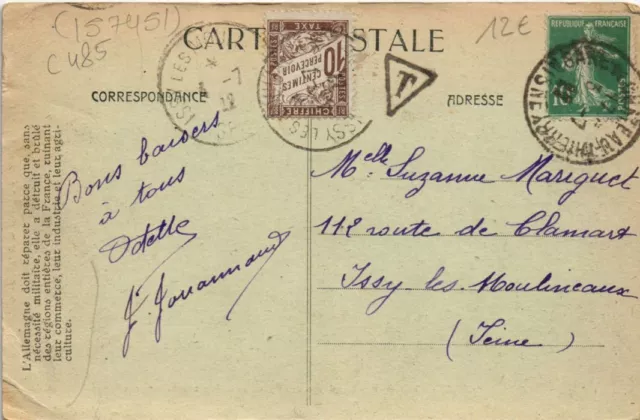 (157451)
C 485
12€
CARTE POSTALE
CORRESPONDANCE
ADRESSE
ISSY LES
7
22
CHIFFRE
TAXE
10
CENTIMES
À PERCEVOIR
ISSY LES
T
REPUBLIQUE FRANÇAISE
10
CHATEAU-THIERRY
AISNE
Bons baisers
à tous
Odette
J. Jouannaud
Melle Suzanne Mariguet
112 route de Clamart
Issy les Moulineaux
(Seine)
L'Allemagne doit réparer parce que, sans
nécessité militaire, elle a détruit et brûlé
des régions entières de la France, ruinant
leur commerce, leur industrie et leur agri-
culture.